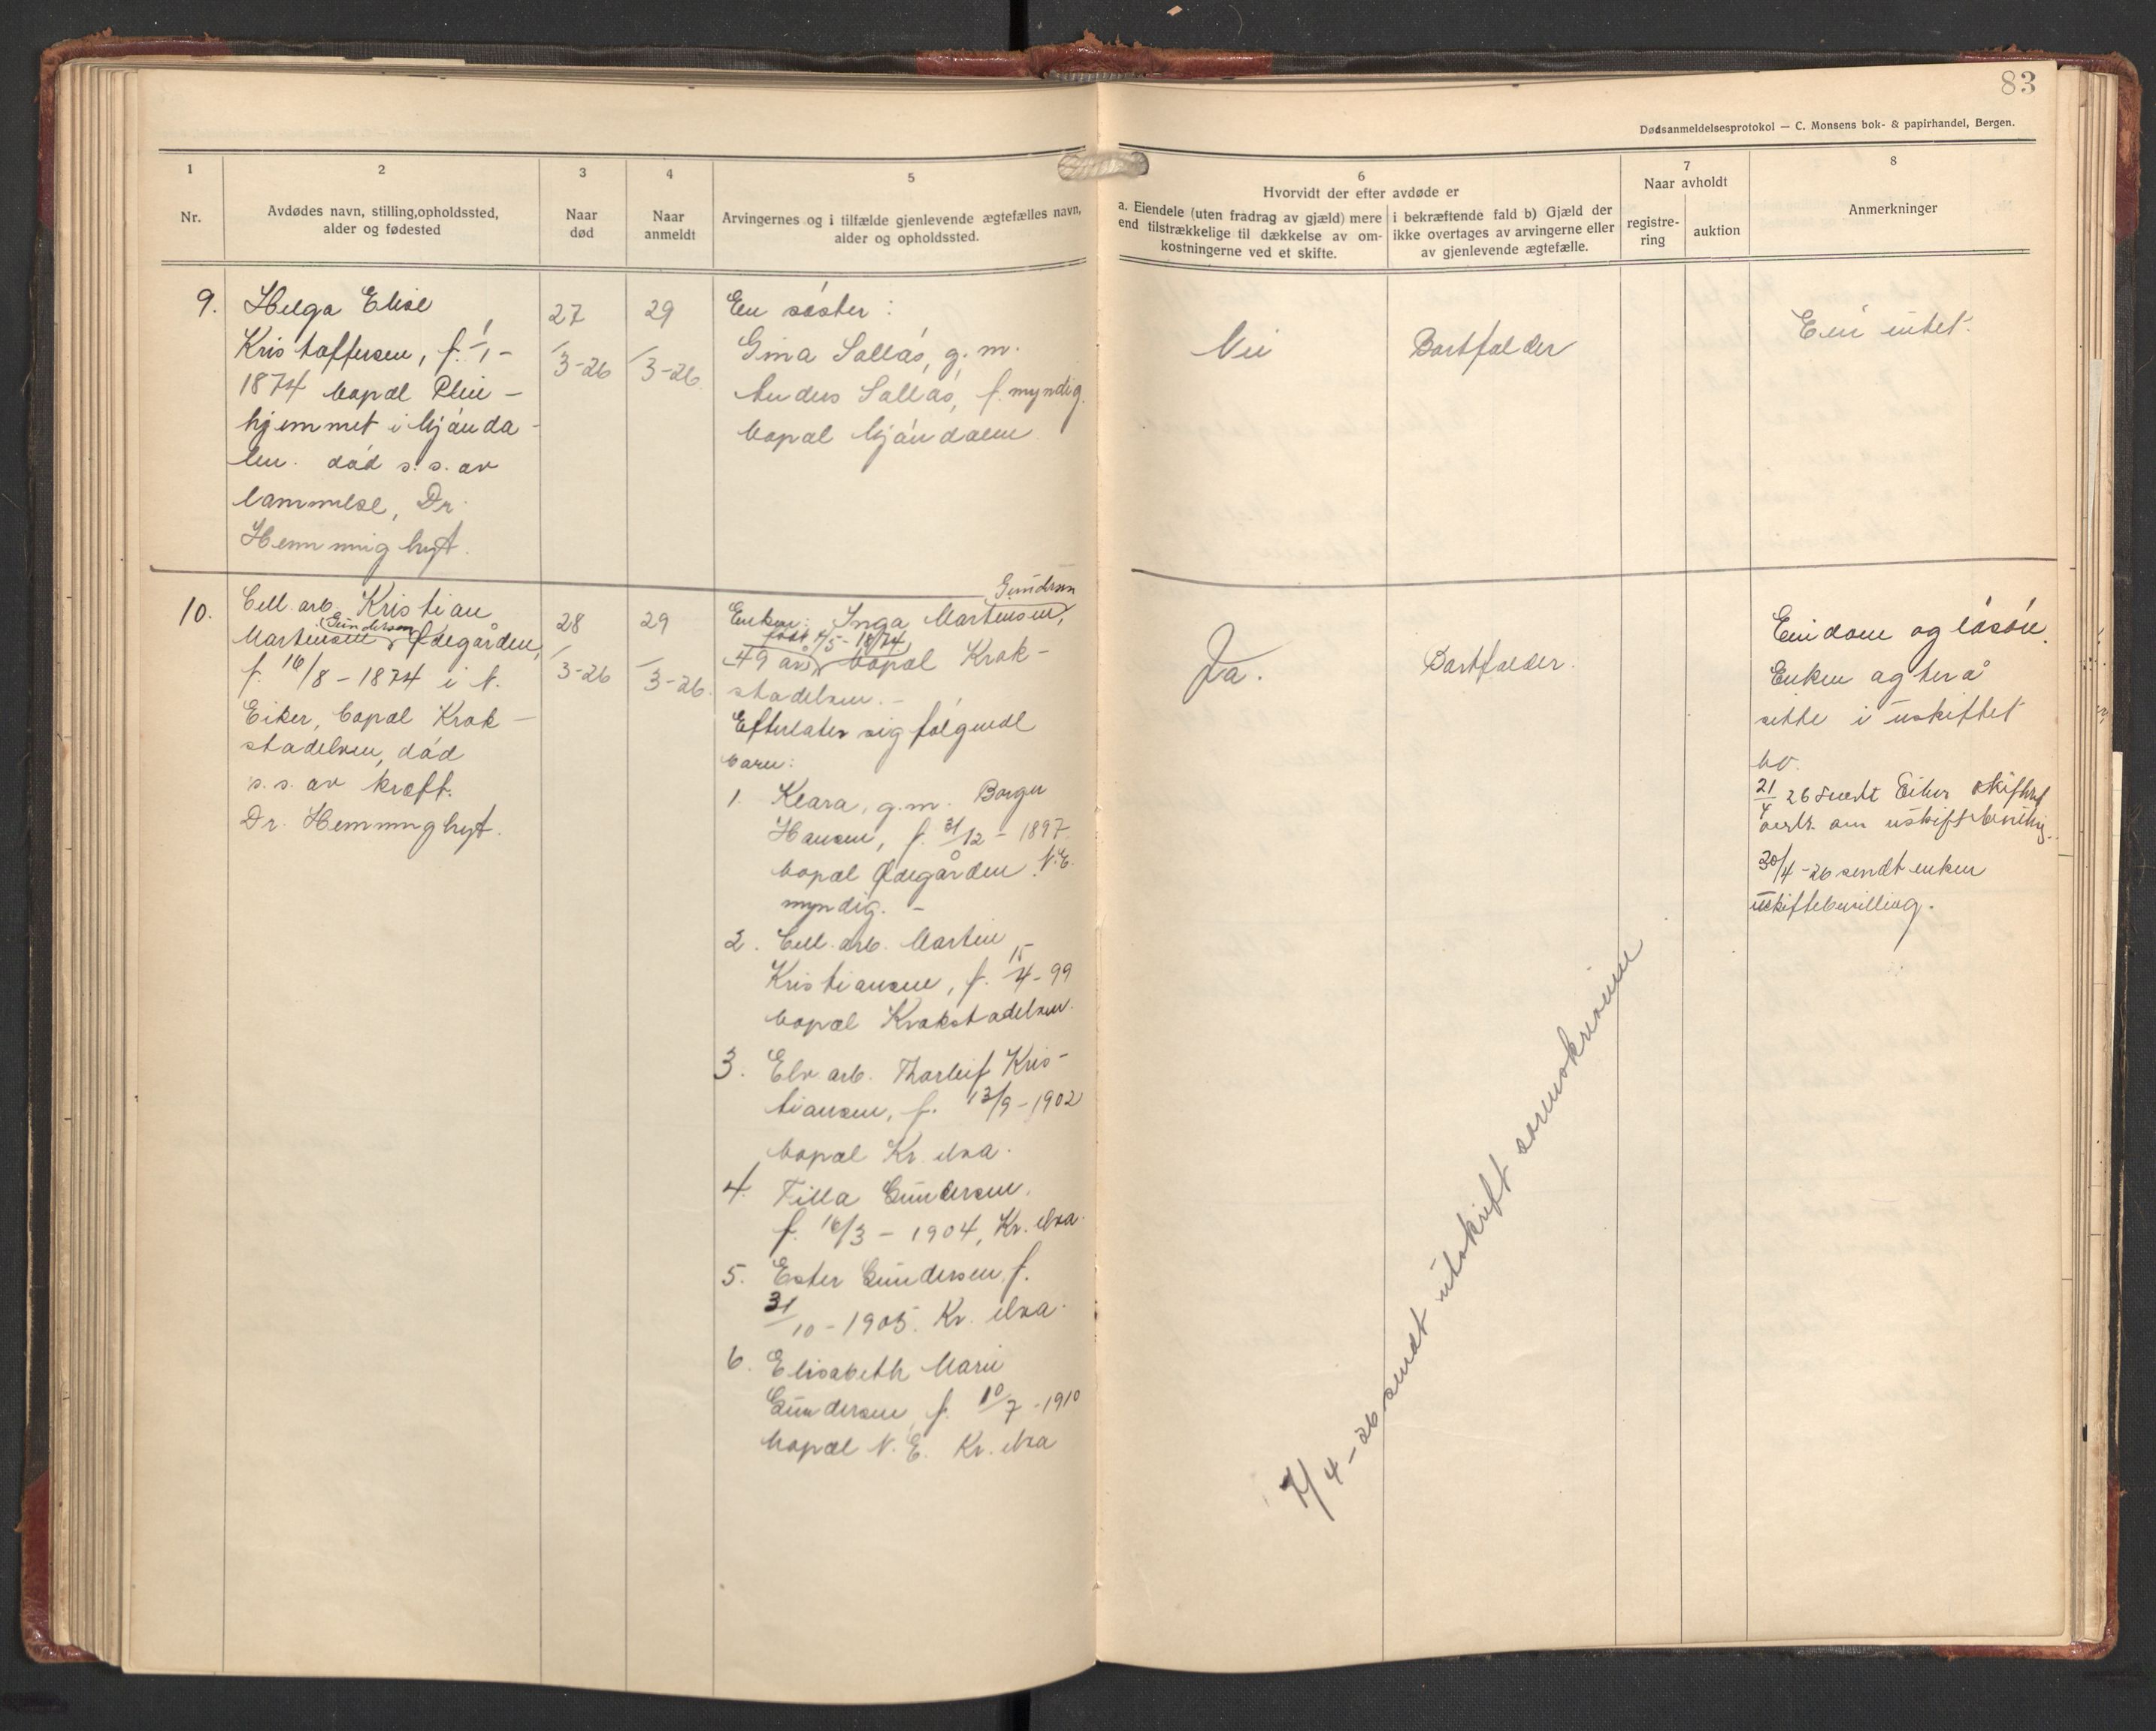 83
Dødsanmeldelsesprotokol — C. Monsens bok- & papirhandel, Bergen.
1
Nr.
2
Avdødes navn, stilling, opholdssted,
alder og fødested
3
Naar
død
4
Naar
anmeldt
5
Arvingernes og i tilfælde gjenlevende ægtefælles navn,
alder og opholdssted.
6
Hvorvidt der efter avdøde er
a. Eiendele (uten fradrag av gjæld) mere
end tilstrækkelige til dækkelse av om-
kostningerne ved et skifte.
i bekræftende fald b) Gjæld der
ikke overtages av arvingerne eller
av gjenlevende ægtefælle.
7
Naar avholdt
registre-
ring
auktion
8
Anmerkninger
9.
Helga Elise
Kristoffersen, f. 1/1 -
1874 bopæl Plei-
hjemmet i Mjønda-
len. død s. s. av
lammelse, Dr.
Hemming hyt.
27/3-26
29/3-26.
En søster:
Gina Sollås, g. m.
Anders Sollås, f. myndig.
bopæl Mjøndalen
Nei
Bortfalder
Eier intet.
10.
Cell. arb. Kristian
Gundersen
Martinsen Ødegården,
f. 16/8 - 1874 i N.
Eiker, bopæl Krok-
stadelven, død
s. s. av kræft.
Dr. Hemming hyt.
28/3-26
29/3-26.
Gundersen
Enken: Inga Martinsen,
født
49 år, bopæl Krok-
stadelven. -
Efterlater sig følgende
barn:
1. Klara, g. m. Borger
Hansen, f. 31/12 - 1897
bopæl Ødegården N. E.
myndig. -
2. Cell. arb. Martin
Kristiansen, f. 15/4-99
bopæl Krokstadelven.
3. Elv arb. Thorleif Kris-
tiansen, f. 13/9 - 1902
bopæl Kr. elva.
4. Tilla Gundersen,
f. 16/3 - 1904, Kr. elva.
5. Ester Gundersen, f.
31/10 - 1905. Kr. elva.
6. Elisabeth Marie
Gundersen, f. 10/7 - 1910
bopæl N. E. Kr. elva
Ja.
Bortfalder.
Eiendom og løsøre.
Enken agter å
sitte i uskiftet
bo.
21/4 26 sendt Eiker skifteret
om uskiftebevillig.
30/4 - 26 sendt enken
uskiftebevilling.
7/4 - 26 sendt utskrift sorenskriveren